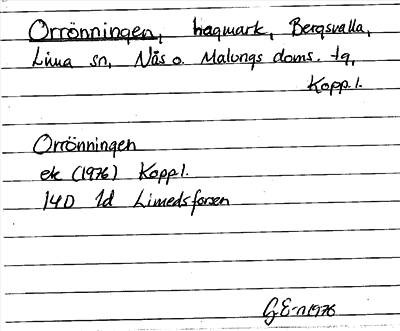 Orrönningen, hagmark, Bergsvalla,
Lima sn, Nås o. Malungs doms. tg,
Kopp.l.
Orrönningen
ek (1976) Koppl.
14D 1d Limedsforsen
GE-n 1976